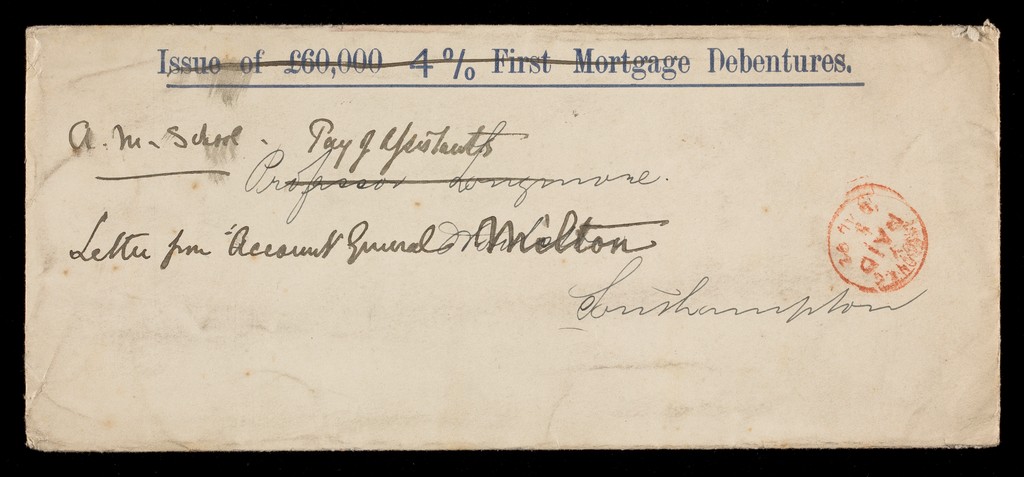 Issue of £60,000 4% First Mortgage Debentures.
A. M. School. Pay of Assistants
Professor Longmore.
Letter from Account General Milton
Southampton
PAID